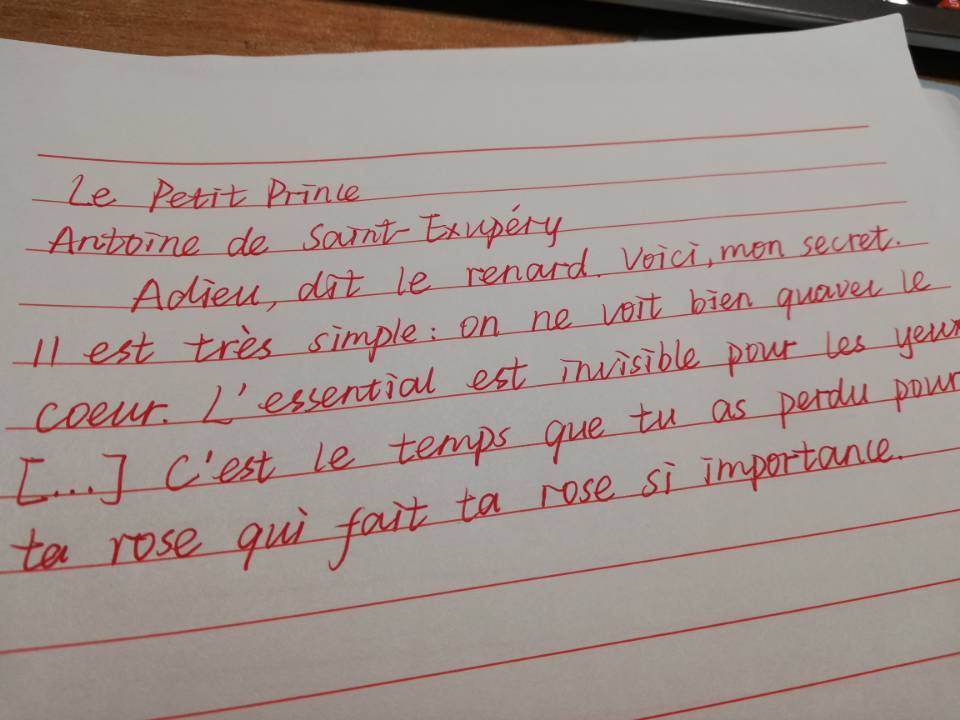 Le Petit Prince
Antoine de Saint-Exupéry
Adieu, dit le renard. Voici, mon secret.
Il est très simple: on ne voit bien quavec le
coeur. L'essential est invisible pour les yeux
[...] C'est le temps que tu as perdu pour
ta rose qui fait ta rose si importance.